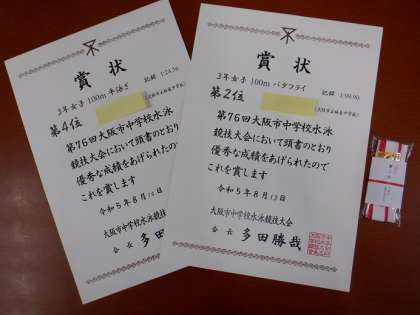 賞状
3年女子 100m 平泳ぎ
記録 1:24.56
第4位
第76回大阪市中学校水泳
競技大会において頭書のとおり
優秀な成績をあげられたので
これを賞します
令和5年8月12日
大阪市中学校水泳競技大会
会長 多田
賞状
3年女子 100m バタフライ
記録
第2位
第76回大阪市中学校水泳
競技大会において頭書のとおり
優秀な成績をあげられたので
これを賞します
令和5年8月12日
大阪市中学校水泳競技大会
会長 多田勝哉